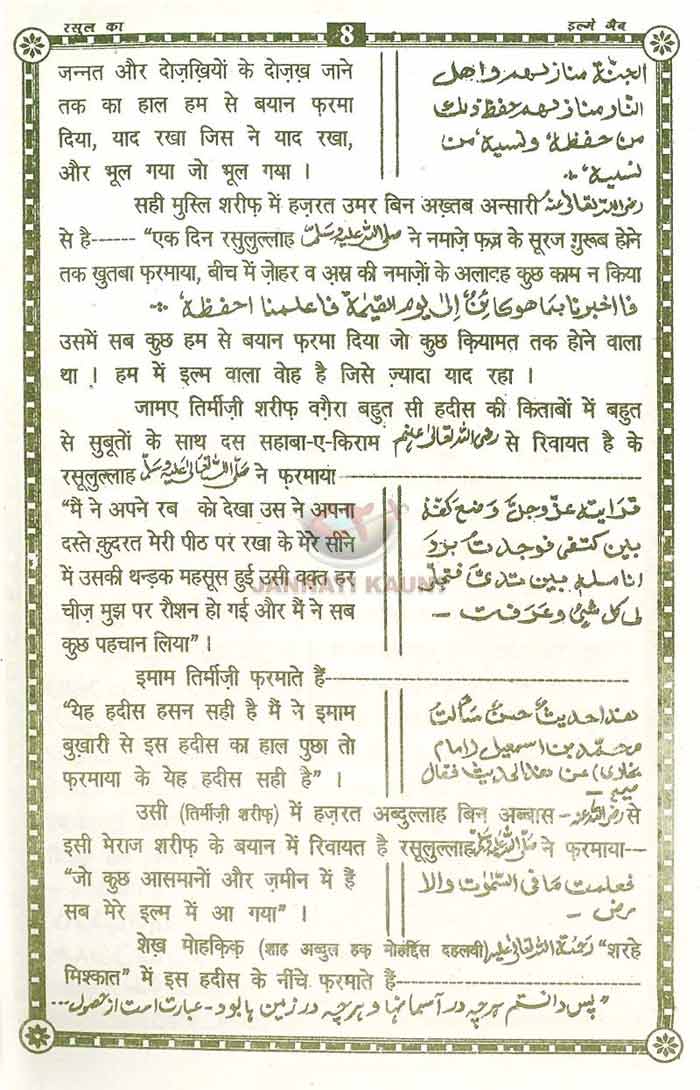 रसूल का
8
इल्मे ग़ैब
जन्नत और दोज़खि़यों के दोज़ख जाने
तक का हाल हम से बयान फ़रमा
दिया, याद रखा जिस ने याद रखा,
और भूल गया जो भूल गया ।
الجنة منازلهم واهل
النار منازلهم حفظ ذلك
من حفظهٗ ونسيهٗ من
نسيهٗ
सही मुस्लि शरीफ़ में हज़रत उमर बिन अख़्तब अन्सारी رضی اللہ تعالیٰ عنہ
से है------ “एक दिन रसुलुल्लाह صلی اللہ علیہ وسلم ने नमाज़े फ़ज्र के सूरज ग़ुरूब होने
तक ख़ुतबा फ़रमाया, बीच में ज़ोहर व अस्र की नमाज़ों के अलावह कुछ काम न किया
فااخبرنا بماهو كائن إلى يوم القيمة فاعلمنا احفظهٗ
उसमें सब कुछ हम से बयान फ़रमा दिया जो कुछ कि़यामत तक होने वाला
था | हम में इल्म वाला वोह है जिसे ज़्यादा याद रहा ।
जामए तिर्मीज़ी शरीफ़ वग़ैरा बहुत सी हदीस की किताबों में बहुत
से सुबूतों के साथ दस सहाबा-ए-किराम رضی اللہ تعالیٰ عنہم से रिवायत है के
रसूलुल्लाह صلی اللہ تعالیٰ علیہ وسلم ने फ़रमाया
“मैं ने अपने रब को देखा उस ने अपना
दस्ते क़ुदरत मेरी पीठ पर रखा के मेरे सीने
में उसकी थन्डक महसूस हुई उसी वक़्त हर
चीज़ मुझ पर रौशन हो गई और मैं ने सब
कुछ पहचान लिया” ।
فرايته عزوجل وضع كفه
بين كتفى فوجدت برد
انامله بين ثدى فتجلى
لى كل شئ وعرفت -
JANNATI KAUN?
इमाम तिर्मीज़ी फ़रमाते हैं
“येह हदीस हसन सही है मैं ने इमाम
बुख़ारी से इस हदीस का हाल पुछा तो
फ़रमाया के येह हदीस सही है” ।
هذا حديث حسن سألت
محمد بن اسمعيل (امام
بخاری) عن هذا لحديث فقال
صحيح -
उसी (तिर्मीज़ी शरीफ़) में हज़रत अब्दुल्लाह बिन अब्बास - رضی اللہ عنہ से
इसी मेराज शरीफ़ के बयान में रिवायत है रसूलुल्लाह صلی اللہ علیہ وسلم ने फ़रमाया--
“जो कुछ आसमानों और ज़मीन में हैं
सब मेरे इल्म में आ गया” ।
فعلمت ما فى السموت والا
رض -
शेख़ मोहकि़क़ (शाह अब्दुल हक़ मोहद्दिस दहलवी) رحمۃ اللہ تعالیٰ علیہ “शरहे
मिश्कात” में इस हदीस के नीचे फ़रमाते हैं
"پس دانستم ہرچہ در آسمانہا و ہرچہ در زمین ہا بود - عبارت است از حصول ...